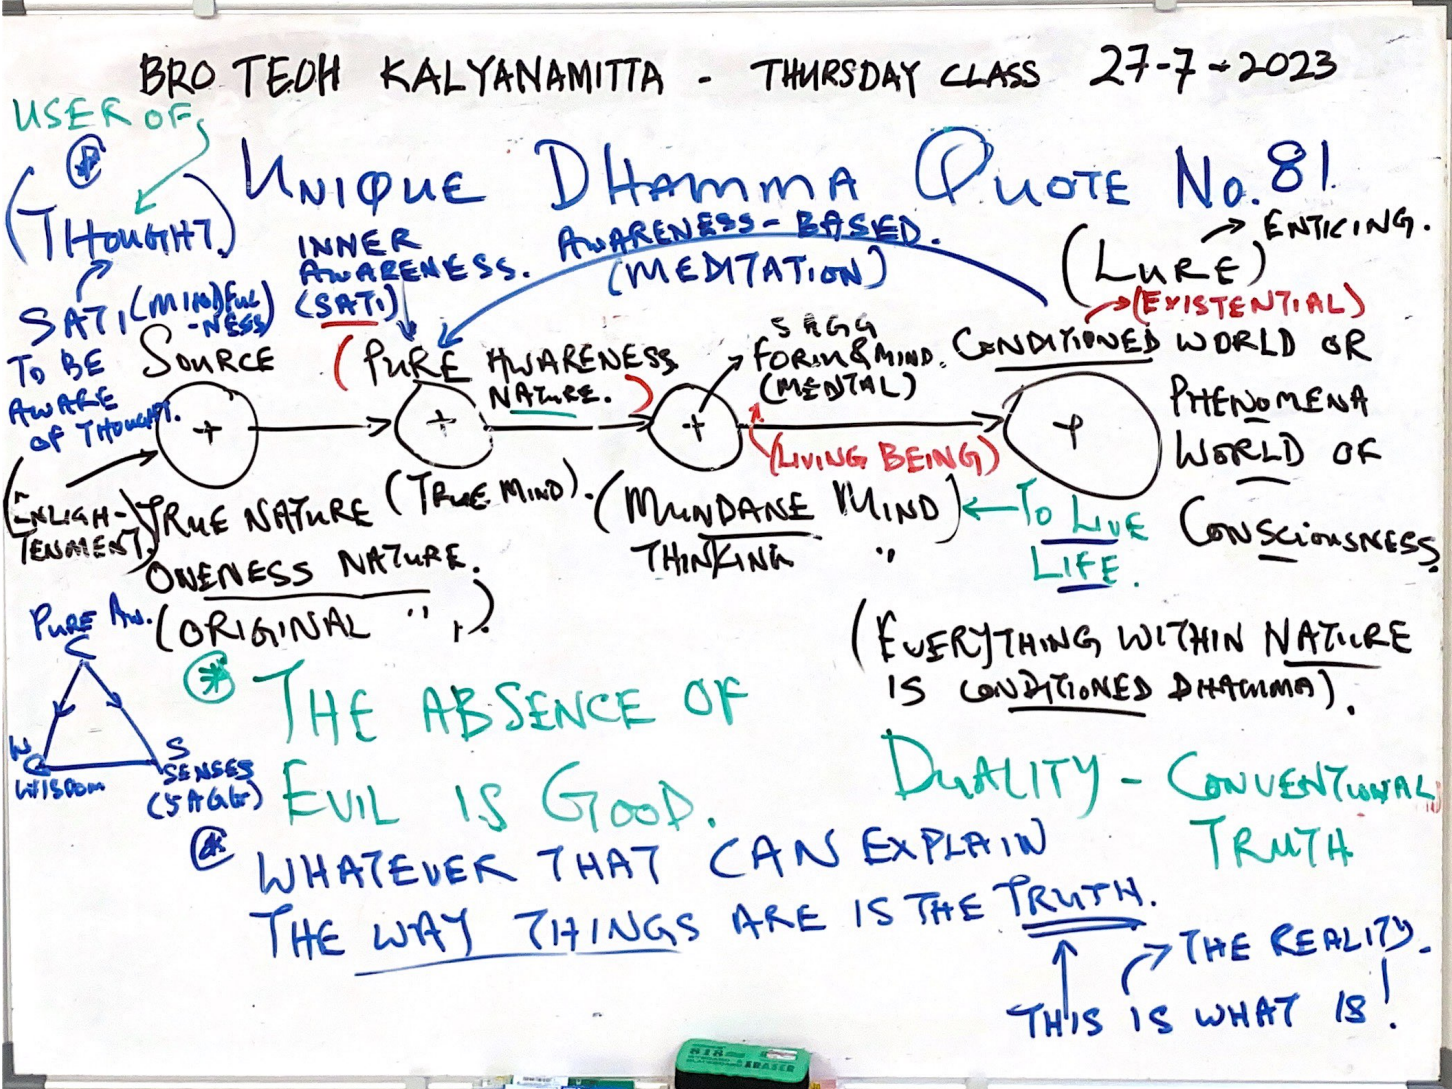 BRO TEOH KALYANAMITTA - THURSDAY CLASS 27-7-2023
USER OF
(THOUGHT.)
UNIQUE DHAMMA QUOTE NO. 81.
INNER
AWARENESS.
(SATI)
AWARENESS-BASED.
(MEDITATION)
(LURE)
ENTICING.
(EXISTENTIAL)
SATI (MINDFUL
-NESS)
TO BE
AWARE
OF THOUGHT.
SOURCE
(PURE AWARENESS
NATURE.)
5 AGG
FORM & MIND.
(MENTAL)
CONDITIONED WORLD OR
PHENOMENA
WORLD OF
CONSCIOUSNESS.
(LIVING BEING)
(ENLIGH-
TENMENT)
TRUE NATURE
ONENESS NATURE.
(ORIGINAL " ")
(TRUE MIND).
(MUNDANE MIND)
THINKING "
TO LIVE
LIFE.
(EVERYTHING WITHIN NATURE
IS CONDITIONED DHAMMA).
PURE AW.
C
W
WISDOM
S
SENSES
(5 AGG)
THE ABSENCE OF
EVIL IS GOOD.
DUALITY - CONVENTIONAL
TRUTH
WHATEVER THAT CAN EXPLAIN
THE WAY THINGS ARE IS THE TRUTH.
THE REALITY.
THIS IS WHAT IS!
818
ERASER